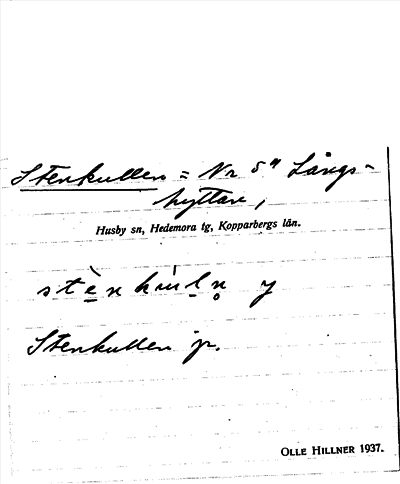 Stenkullen = Nr 5 Långs-
hyttan,
Husby sn, Hedemora tg, Kopparbergs län.
Stenkullen jr.
OLLE HILLNER 1937.